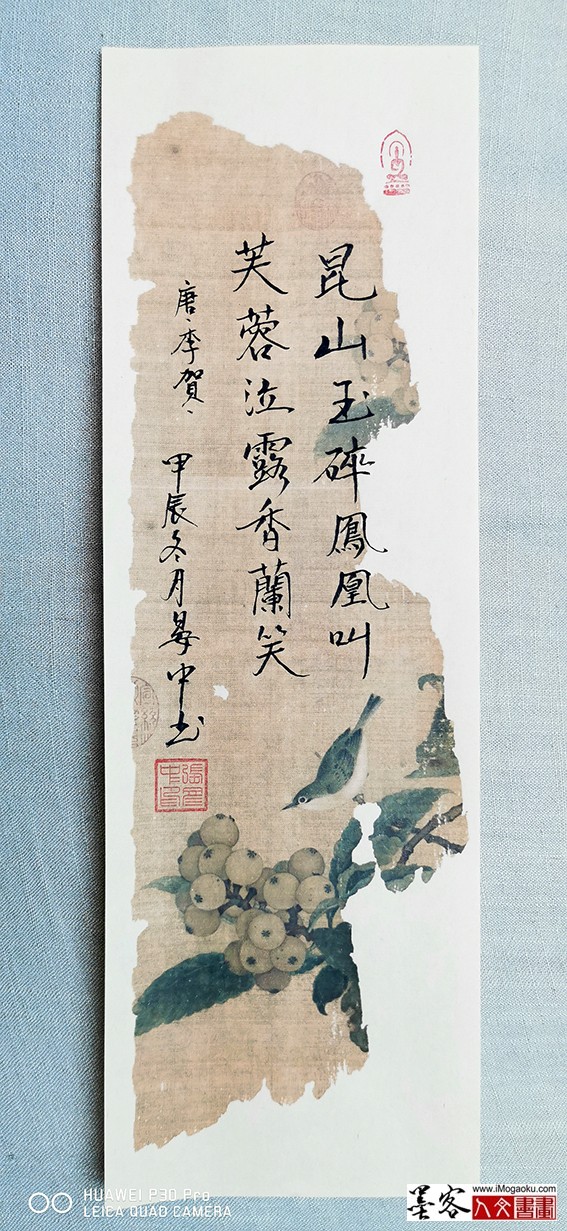 昆山玉碎鳳凰叫
芙蓉泣露香蘭笑
唐·李賀、
甲辰冬月晏中书
HUAWEI P30 Pro
LEICA QUAD CAMERA
www.iMogaoku.com
墨客